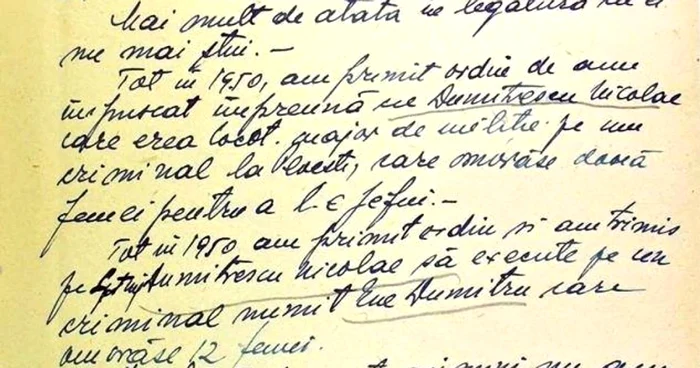 Mai mult de atata in legatura cu ei
nu mai știu. —
Tot in 1950, am primit ordin de am
impuscat impreună cu Dumitrescu Nicolae
care erea locot. major de militie pe un
criminal la care omorâse două
femei pentru a le jefui. —
Tot in 1950 am primit ordin si am trimis
pe Dumitrescu Nicolae să execute pe un
criminal numit Ene Dumitru care
omorâse 12 femei.